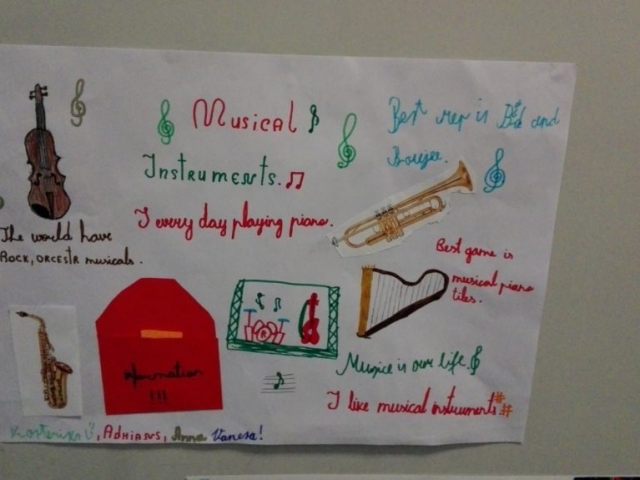 Musical
Instruments.
Best rep is Bad and
Boujee.
I every day playing piano.
The world have
ROCK, ORCESTR musicals.
Best game is
musical piano
tiles.
information
!!!
Musice is our life.
I like musical instruments##
ADRIANS, Anna Vanesa!